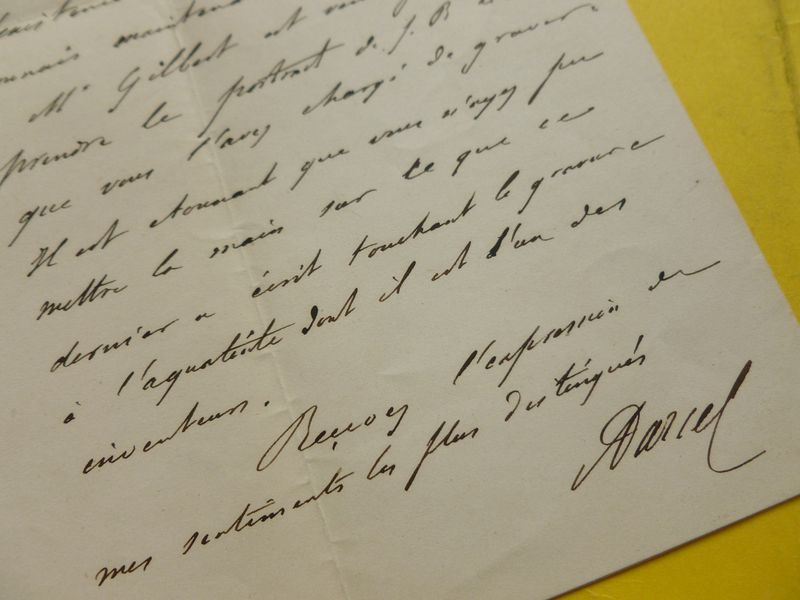 maintenant
Mr Gilbert est
prendre le portrait de J. B
que vous l'avez chargé de graver.
Il est étonnant que vous n'ayez pu
mettre la main sur ce que ce
dernier a écrit touchant la gravure
à l'aquateinte dont il est l'un des
inventeurs.
Recevez l'expression de
mes sentiments les plus distingués
ADarcel